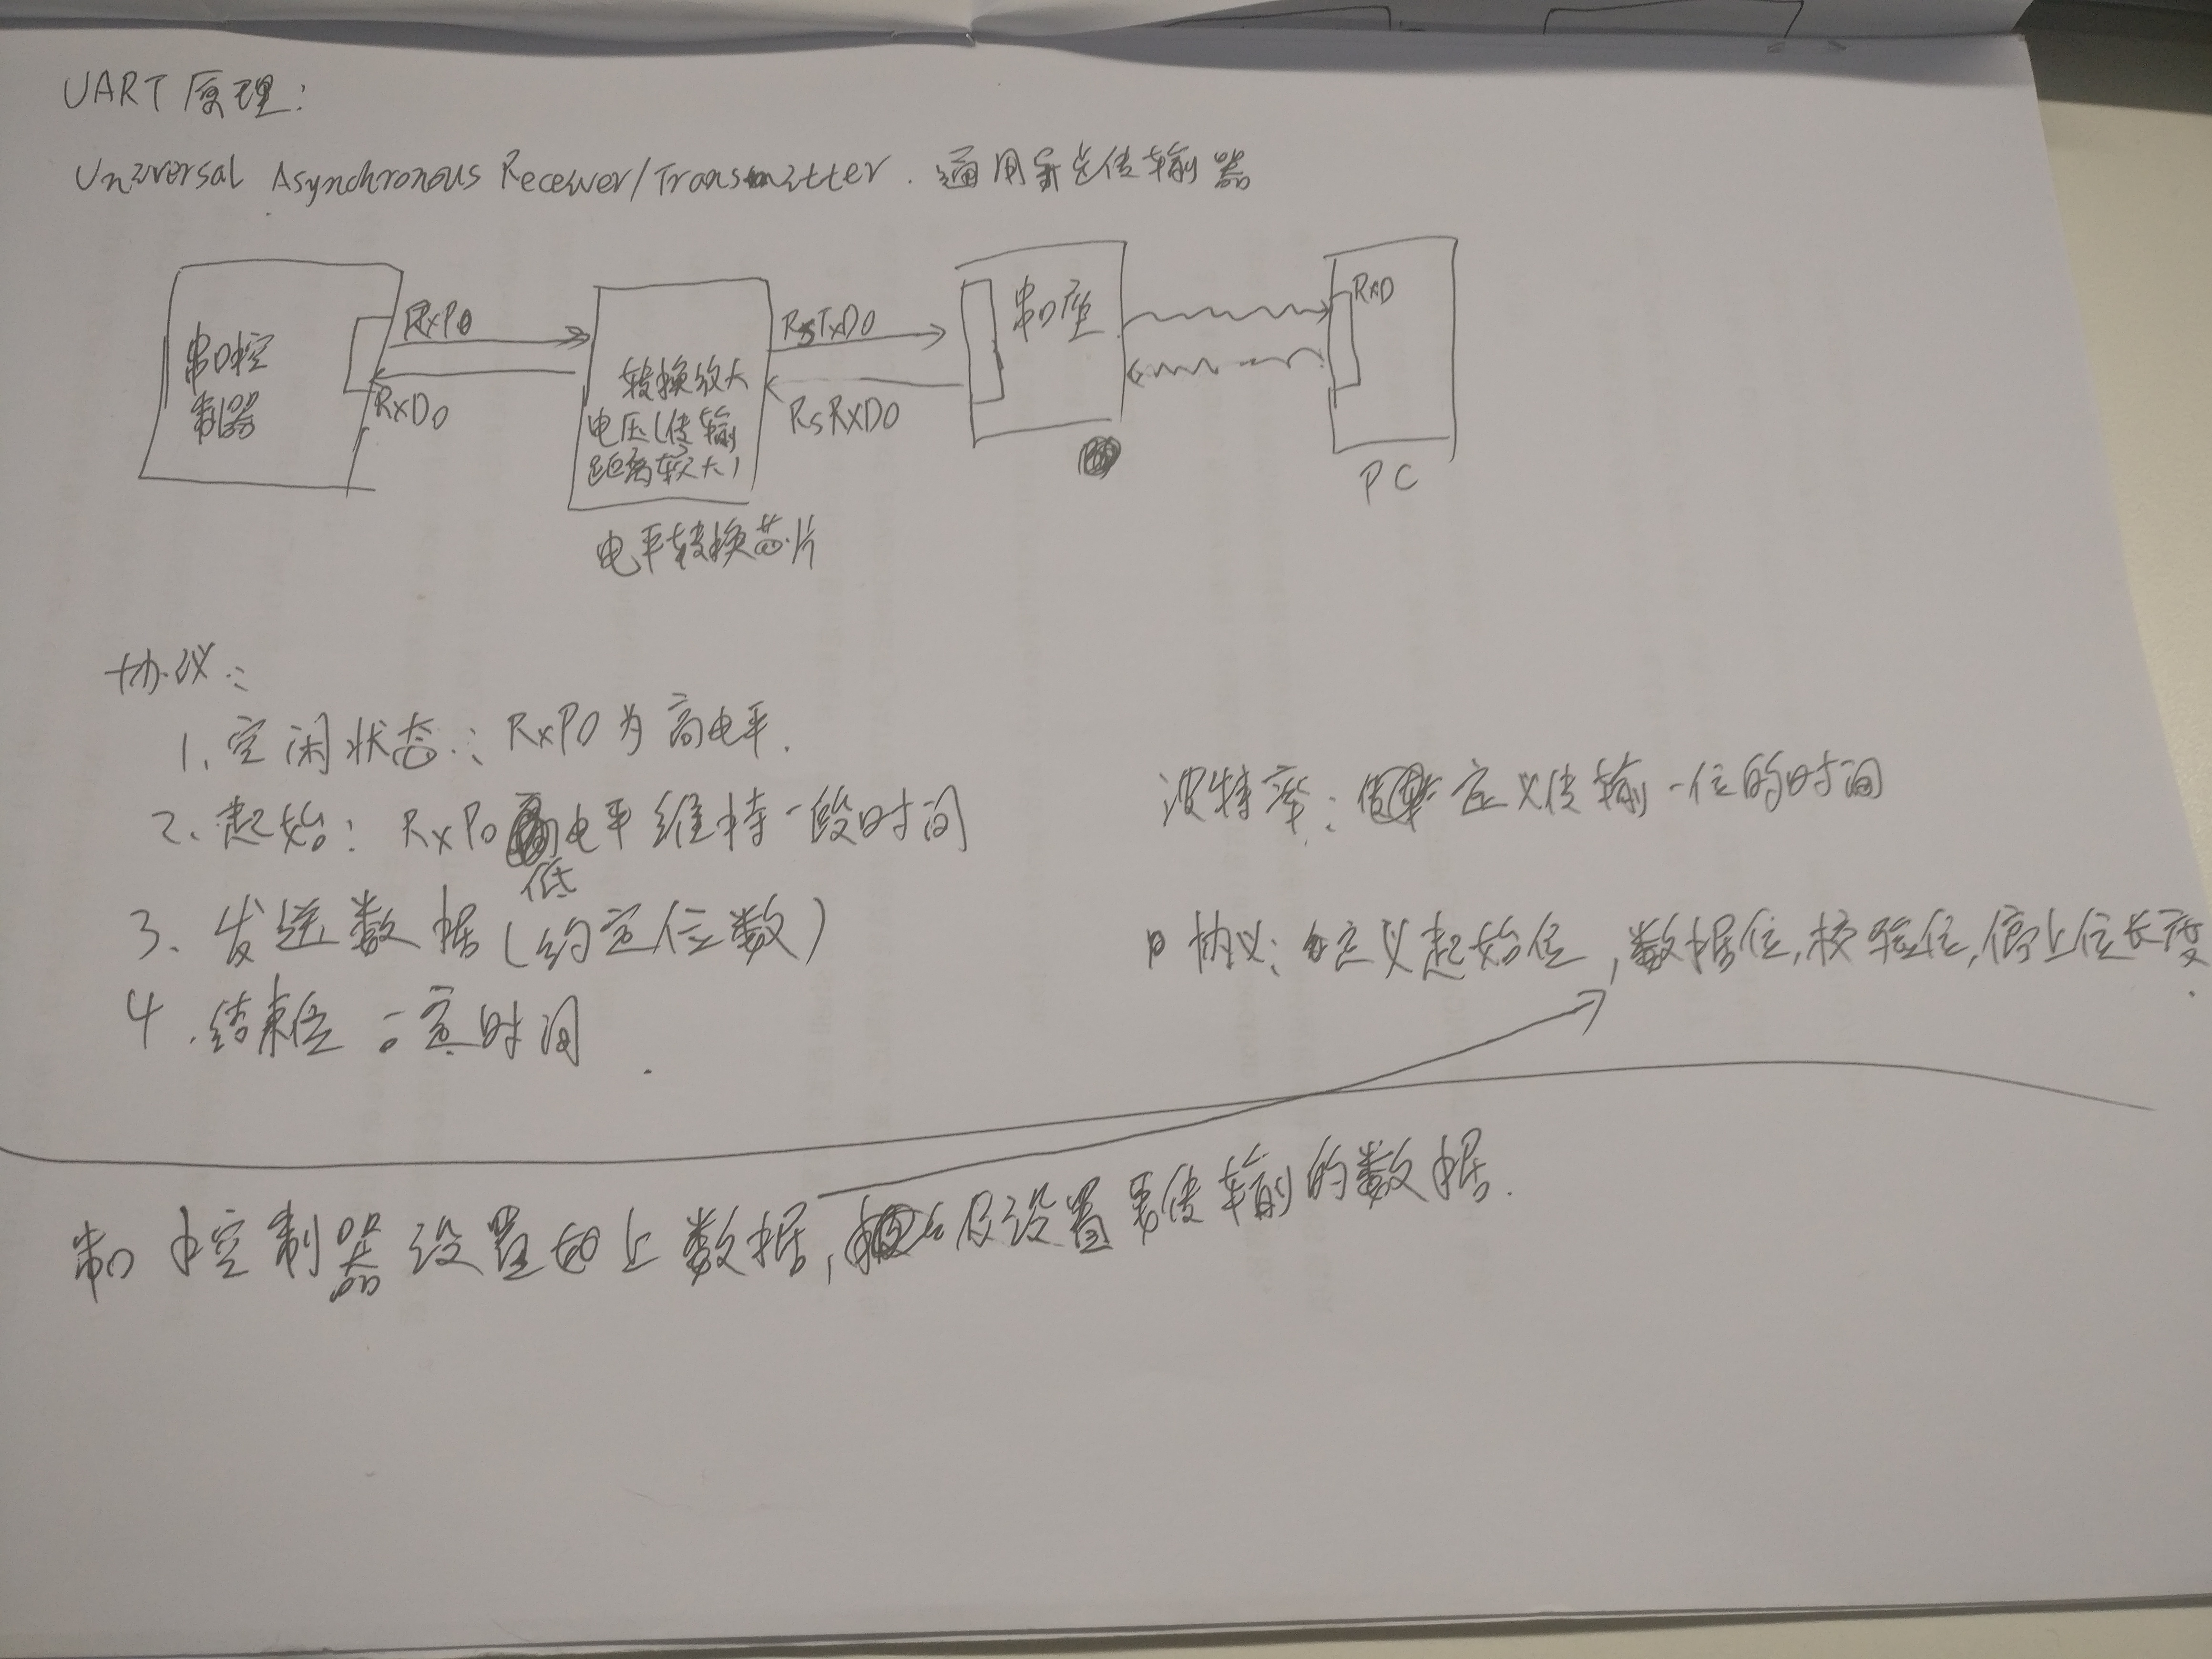 UART 原理:
Universal Asynchronous Receiver/Transmitter. 通用异步传输器
串口控
制器
RxP0
RxD0
转换放大
电压(传输
距离较大)
电平转换芯片
RsTxD0
RsRXD0
串口座
RXD
PC
协议:
1. 空闲状态: RxP0 为高电平.
2. 起始: RxP0 低电平维持一段时间
3. 发送数据(约定位数)
4. 结束位 一定时间
波特率: 定义传输一位的时间
协议: 定义起始位,数据位,校验位,停止位长度.
串口控制器设置如上数据,以及设置要传输的数据.